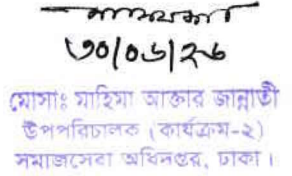 ৩০/০৬/২৬
মোসাঃ মাহিমা আক্তার জান্নাতী
উপপরিচালক (কার্যক্রম-২)
সমাজসেবা অধিদপ্তর, ঢাকা।